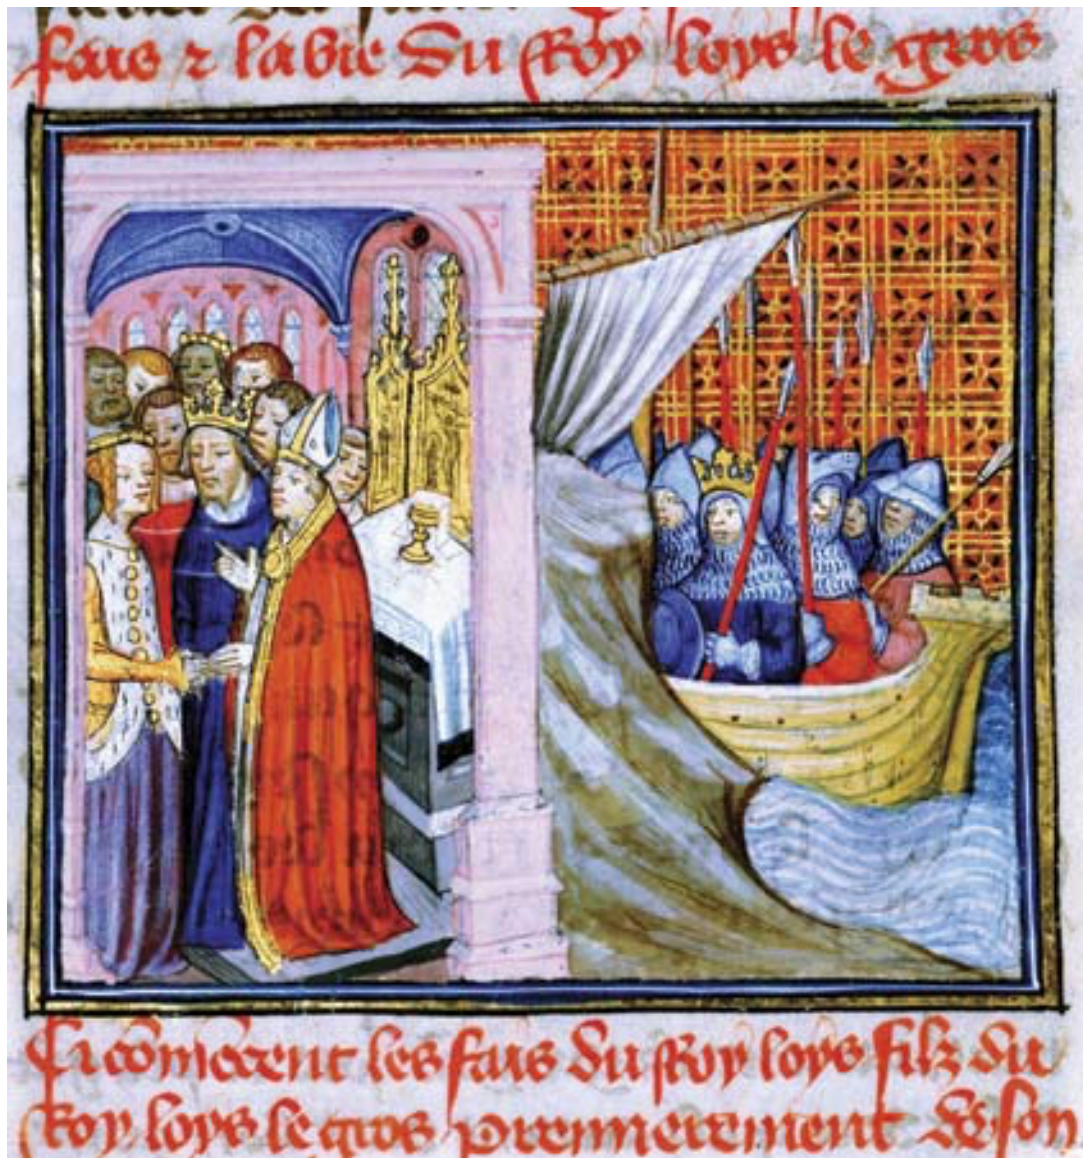 fais ⁊ la vie du Roy loys le gros
Ci cōmēcent les fais du Roy loys filz du
Roy loys le gros premierement de son